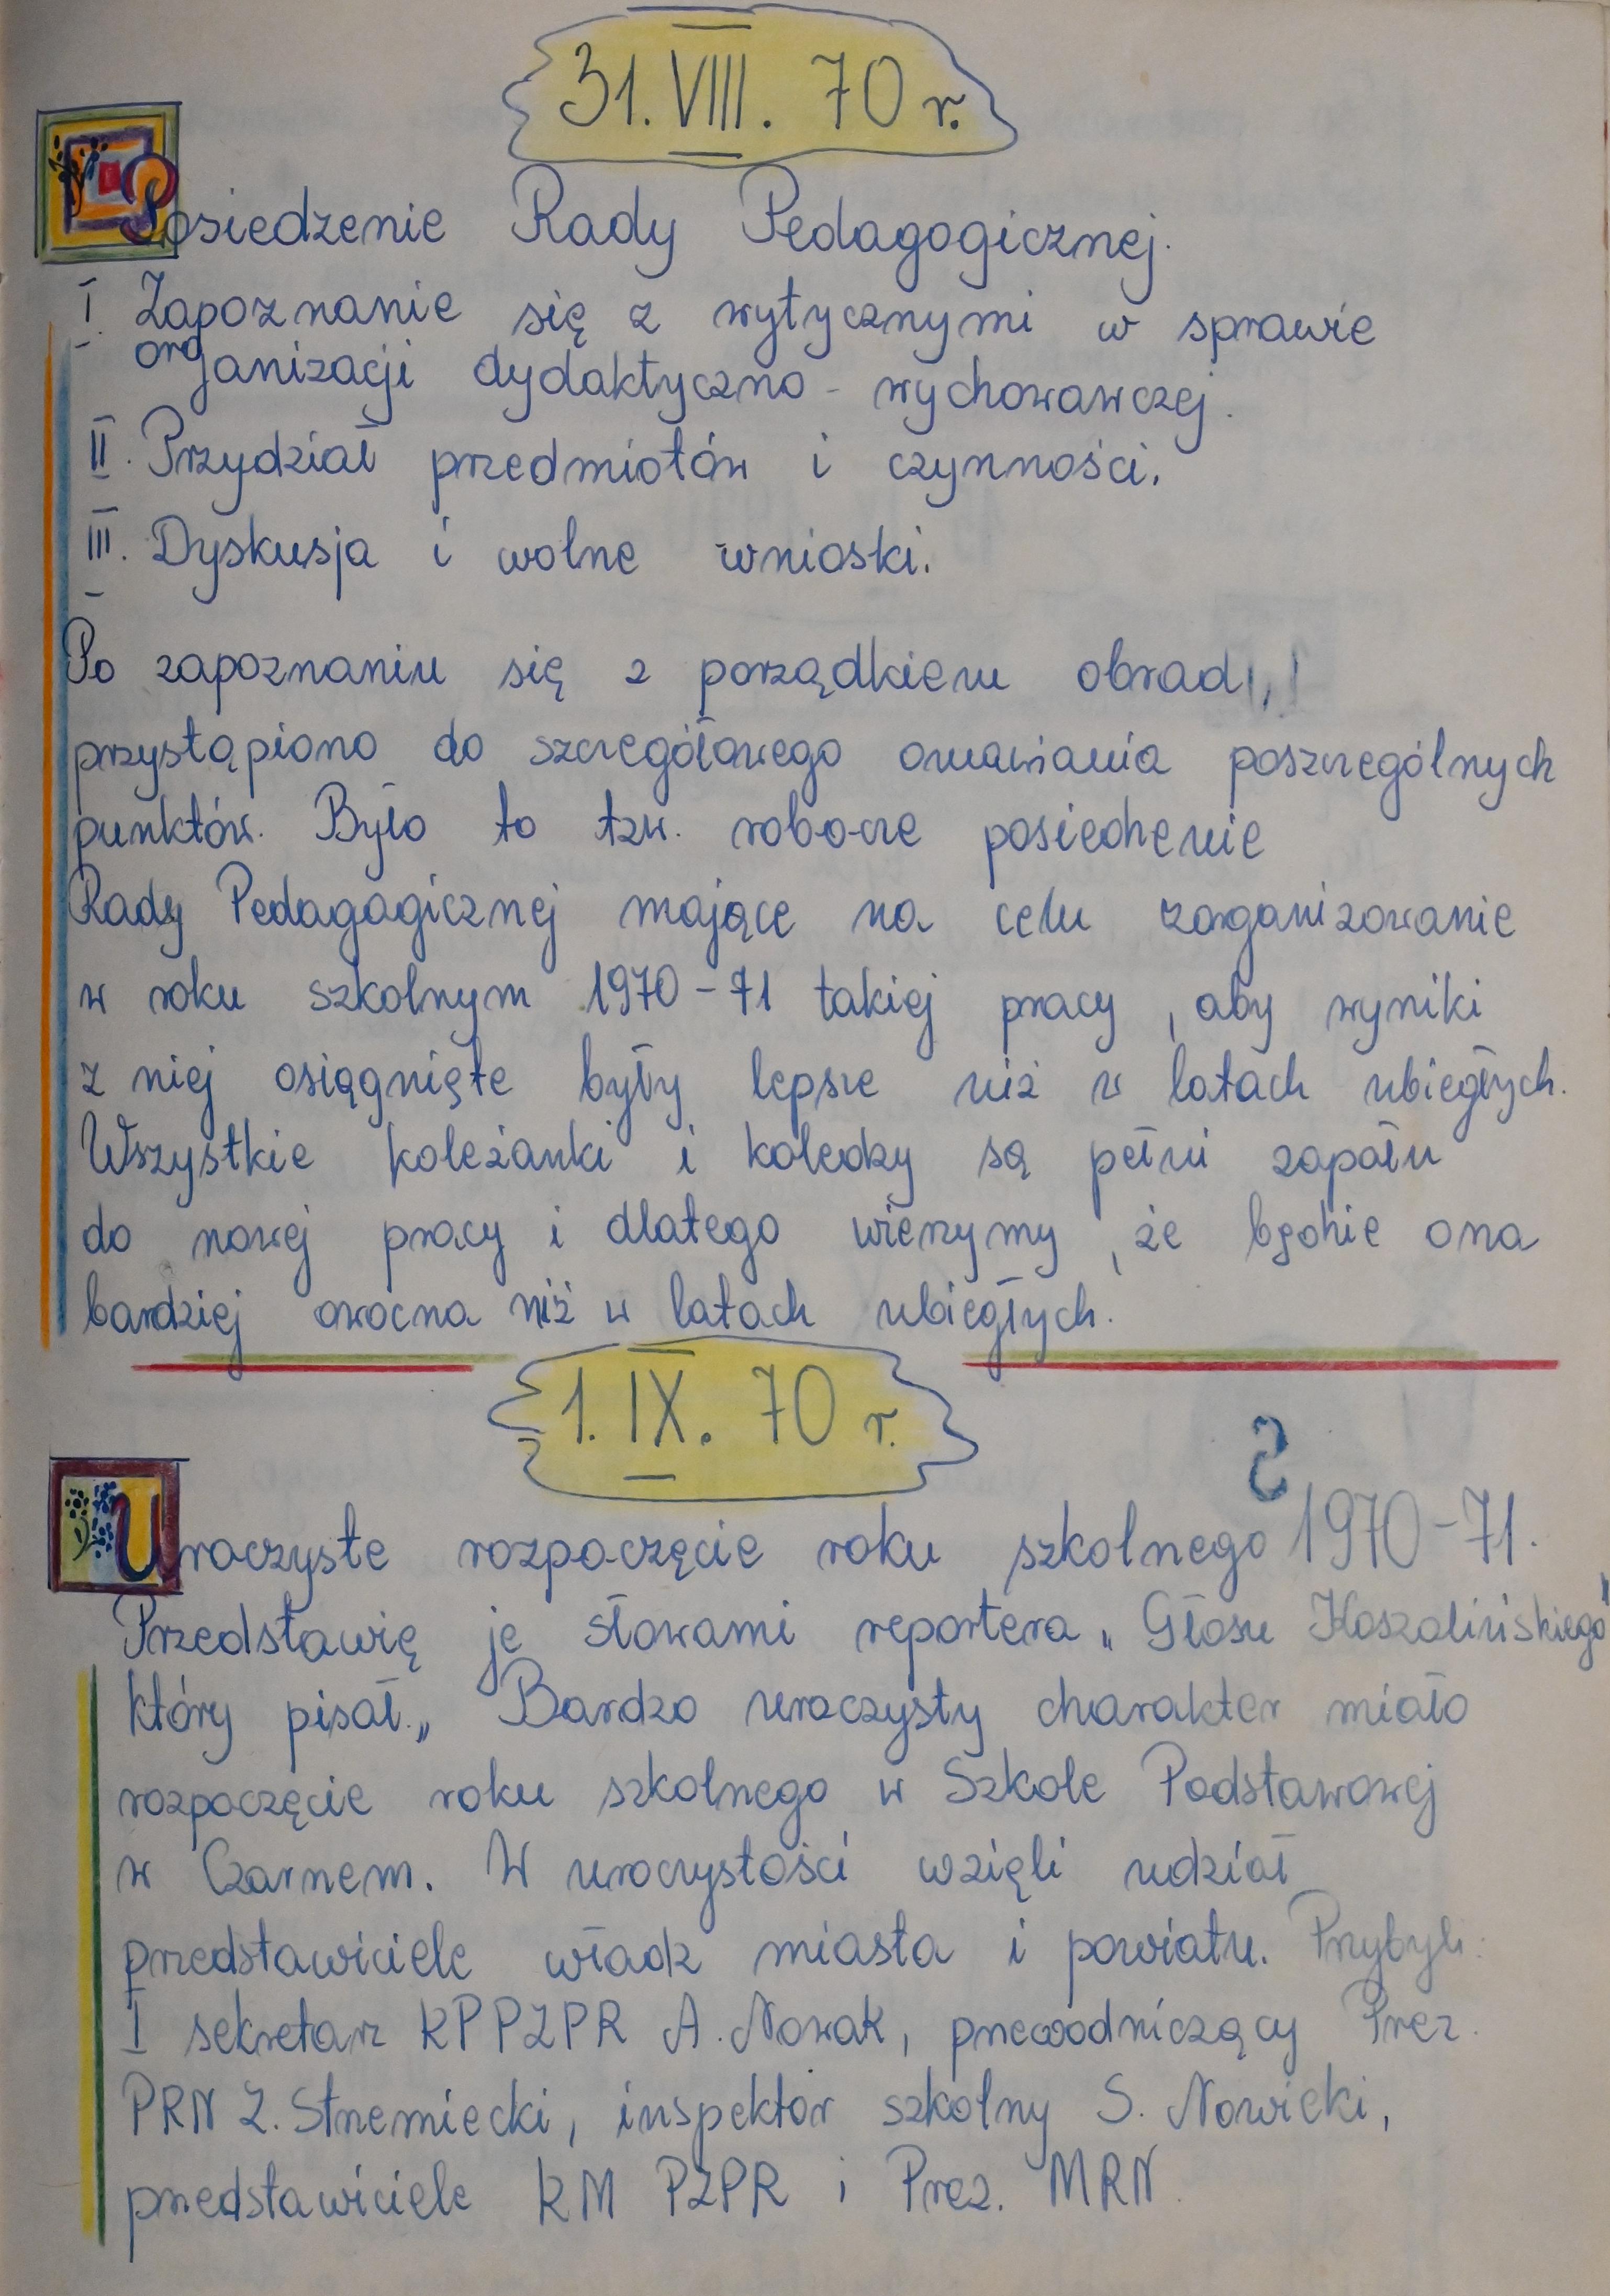 31. VIII. 70 r.
Posiedzenie Rady Pedagogicznej.
I. Zapoznanie się z wytycznymi w sprawie
organizacji dydaktyczno-wychowawczej.
II. Przydział przedmiotów i czynności.
III. Dyskusja i wolne wnioski.
Po zapoznaniu się z porządkiem obrad,
przystąpiono do szczegółowego omawiania poszczególnych
punktów. Było to tzw. robocze posiedzenie
Rady Pedagogicznej mające na celu zorganizowanie
w roku szkolnym 1970-71 takiej pracy, aby wyniki
z niej osiągnięte były lepsze niż w latach ubiegłych.
Wszystkie koleżanki i koledzy są pełni zapału
do nowej pracy i dlatego wierzymy, że będzie ona
bardziej owocna niż w latach ubiegłych.
1. IX. 70 r.
Uroczyste rozpoczęcie roku szkolnego 1970-71.
Przedstawię je słowami reportera „Głosu Koszalińskiego"
który pisał „Bardzo uroczysty charakter miało
rozpoczęcie roku szkolnego w Szkole Podstawowej
w Czarnem. W uroczystości wzięli udział
przedstawiciele władz miasta i powiatu. Przybyli:
I sekretarz KP PZPR A. Nowak, przewodniczący Prez.
PRN Z. Strzemiecki, inspektor szkolny S. Nowicki,
przedstawiciele KM PZPR i Prez. MRN.